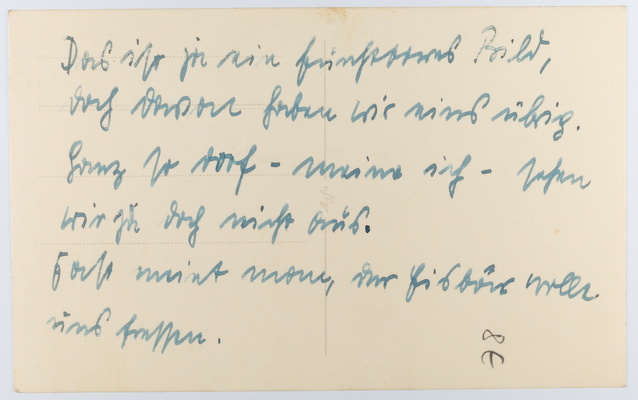 Das ist ja ein furchtbares Bild,
doch davon haben wir eins übrig.
Ganz so doof - meine ich - sehen
wir ja doch nicht aus.
Fast meint man, der Eisbär wollte
uns fressen.
86